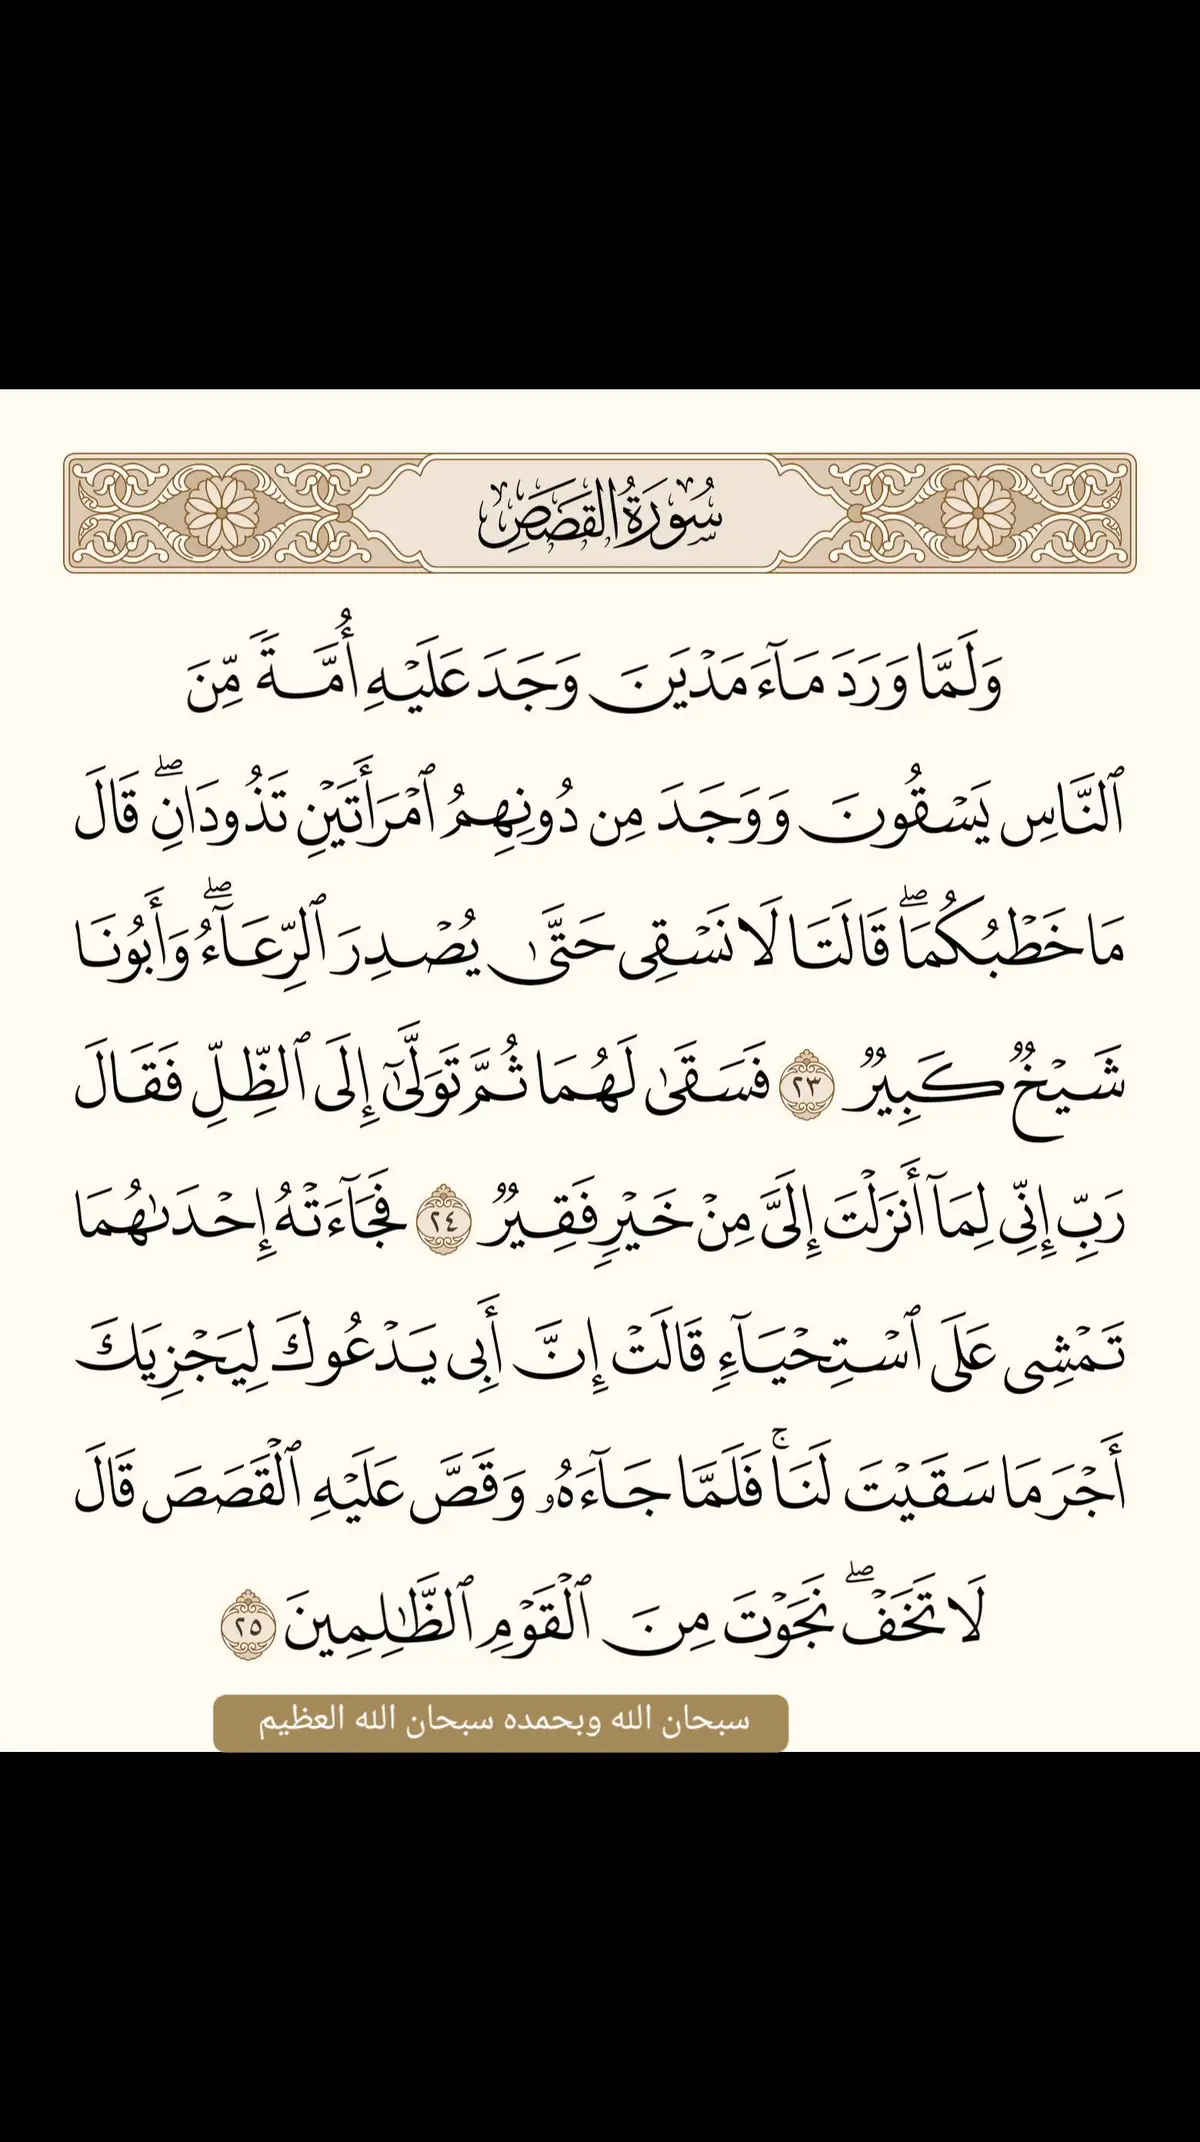 سُورَةُ القَصَصِ
وَلَمَّا وَرَدَ مَآءَ مَدۡيَنَ وَجَدَ عَلَيۡهِ أُمَّةٗ مِّنَ
ٱلنَّاسِ يَسۡقُونَ وَوَجَدَ مِن دُونِهِمُ ٱمۡرَأَتَيۡنِ تَذُودَانِۖ قَالَ
مَا خَطۡبُكُمَاۖ قَالَتَا لَا نَسۡقِي حَتَّىٰ يُصۡدِرَ ٱلرِّعَآءُۖ وَأَبُونَا
شَيۡخٞ كَبِيرٞ ٢٣ فَسَقَىٰ لَهُمَا ثُمَّ تَوَلَّىٰٓ إِلَى ٱلظِّلِّ فَقَالَ
رَبِّ إِنِّي لِمَآ أَنزَلۡتَ إِلَيَّ مِنۡ خَيۡرٖ فَقِيرٞ ٢٤ فَجَآءَتۡهُ إِحۡدَىٰهُمَا
تَمۡشِي عَلَى ٱسۡتِحۡيَآءٖ قَالَتۡ إِنَّ أَبِي يَدۡعُوكَ لِيَجۡزِيَكَ
أَجۡرَ مَا سَقَيۡتَ لَنَاۚ فَلَمَّا جَآءَهُۥ وَقَصَّ عَلَيۡهِ ٱلۡقَصَصَ قَالَ
لَا تَخَفۡۖ نَجَوۡتَ مِنَ ٱلۡقَوۡمِ ٱلظَّٰلِمِينَ ٢٥
سبحان الله وبحمده سبحان الله العظيم